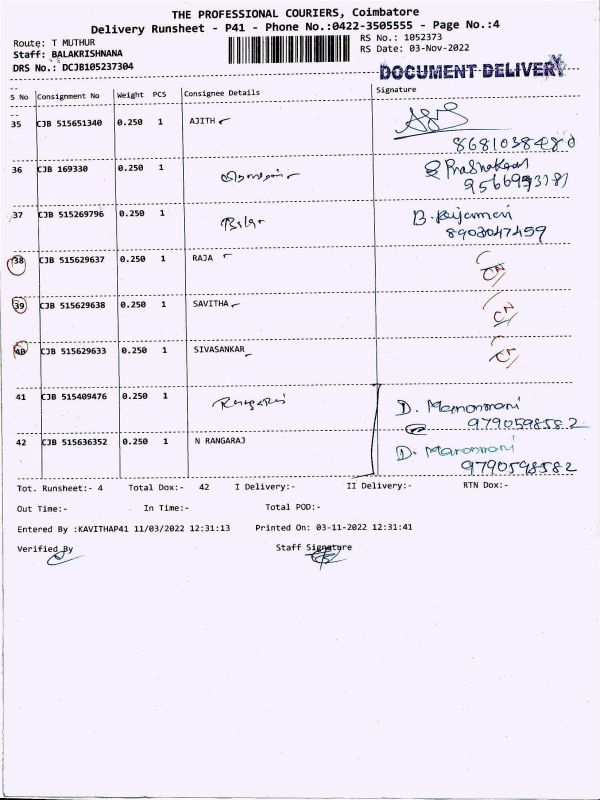 THE PROFESSIONAL COURIERS, Coimbatore
Delivery Runsheet - P41 - Phone No.:0422-3505555 - Page No.:4
Route: T MUTHUR
RS No.: 1052373
Staff: BALAKRISHNANA
RS Date: 03-Nov-2022
DRS No.: DCJB105237304
DOCUMENT DELIVERY
S No Consignment No Weight PCS Consignee Details Signature
35 CJB 515651340 0.250 1 AJITH
36 CJB 169330 0.250 1 Prabhakaran
37 CJB 515269796 0.250 1
8903047459
38 CJB 515629637 0.250 1 RAJA
39 CJB 515629638 0.250 1 SAVITHA
40 CJB 515629633 0.250 1 SIVASANKAR
41 CJB 515409476 0.250 1 D. Manonmani
9790598582
42 CJB 515636352 0.250 1 N RANGARAJ D. Manonmani
9790598582
Tot. Runsheet:- 4 Total Dox:- 42 I Delivery:- II Delivery:- RTN Dox:-
Out Time:- In Time:- Total POD:-
Entered By :KAVITHAP41 11/03/2022 12:31:13 Printed On: 03-11-2022 12:31:41
Verified By Staff Signature